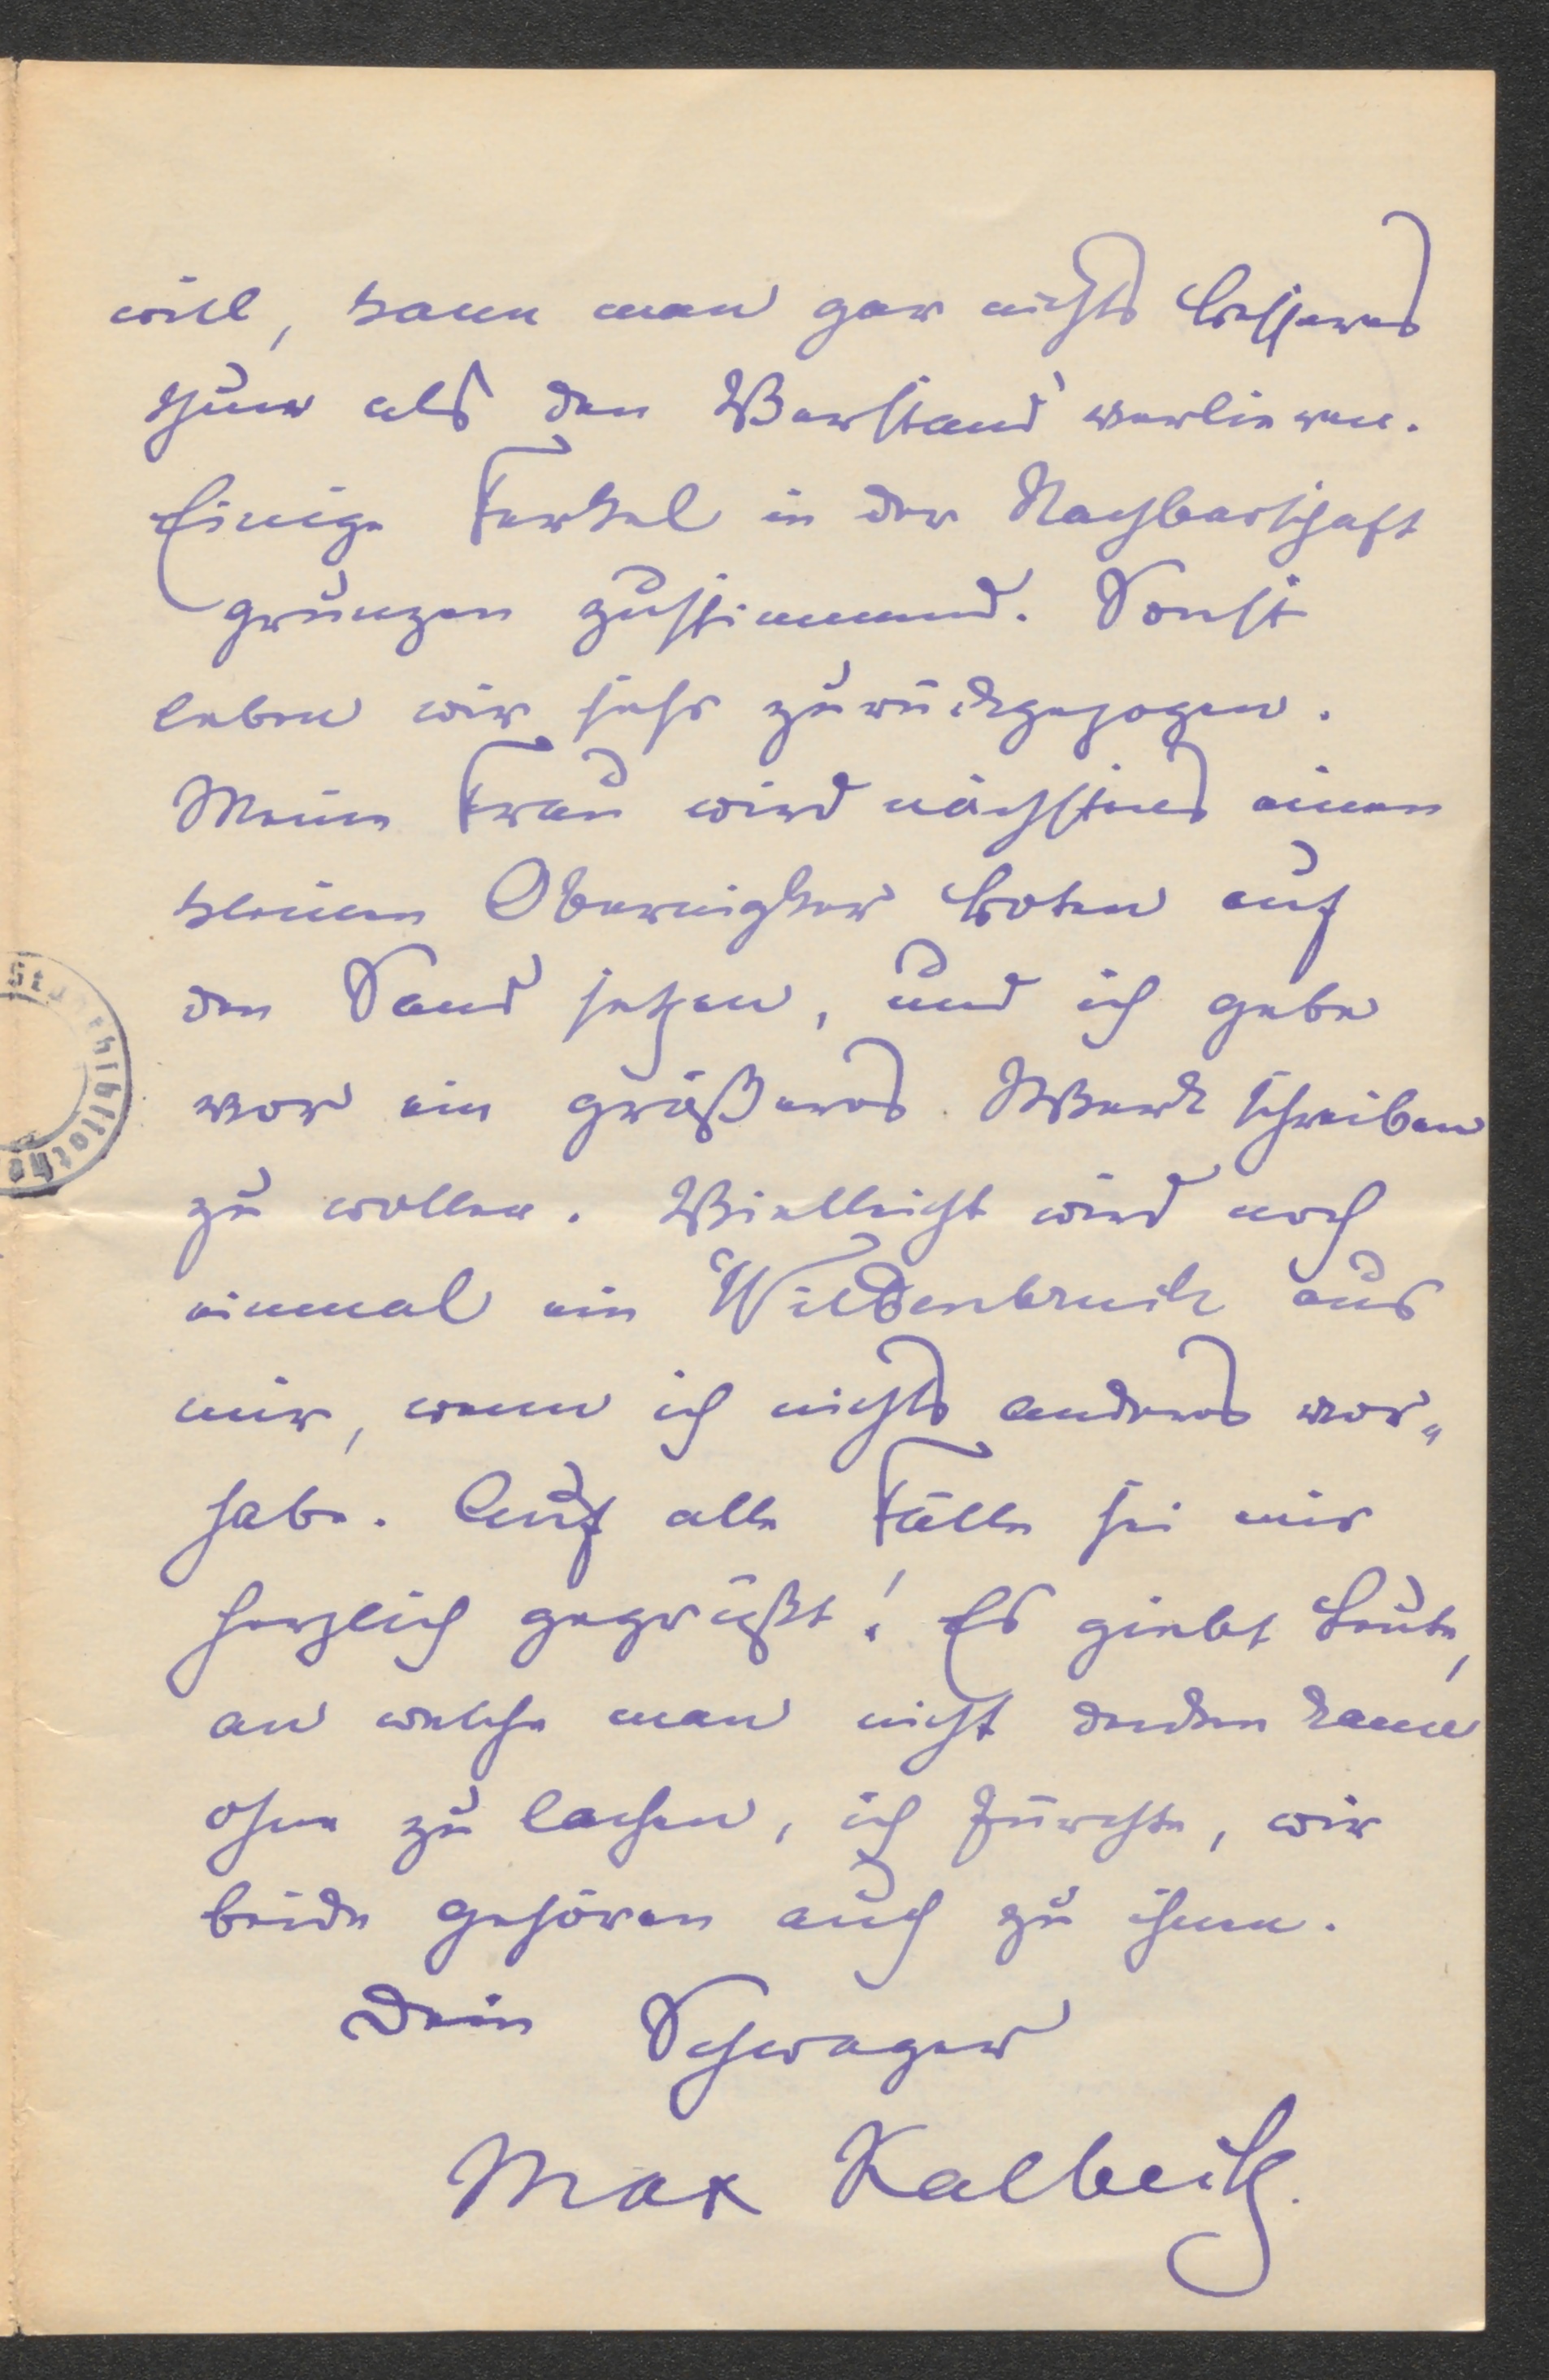 will, kann man gar nichts besseres
thun als den Verstand verlieren.
Einige Ferkel in der Nachbarschaft
grunzen zustimmend. Sonst
leben wir sehr zurückgezogen.
Meine Frau wird nächstens einen
kleinen Obernigker Boten auf
den Sand setzen, und ich gebe
vor ein größeres Werk schreiben
zu wollen. Vielleicht wird noch
einmal ein Wildenbruch aus
mir, wenn ich nichts anderes vor„
habe. Auf alle Fälle sei mir
herzlich gegrüßt! Es giebt Leute,
an welche man nicht denken kann
ohne zu lachen, ich fürchte, wir
beide gehören auch zu ihnen.
Dein Schwager
Max Kalbeck.